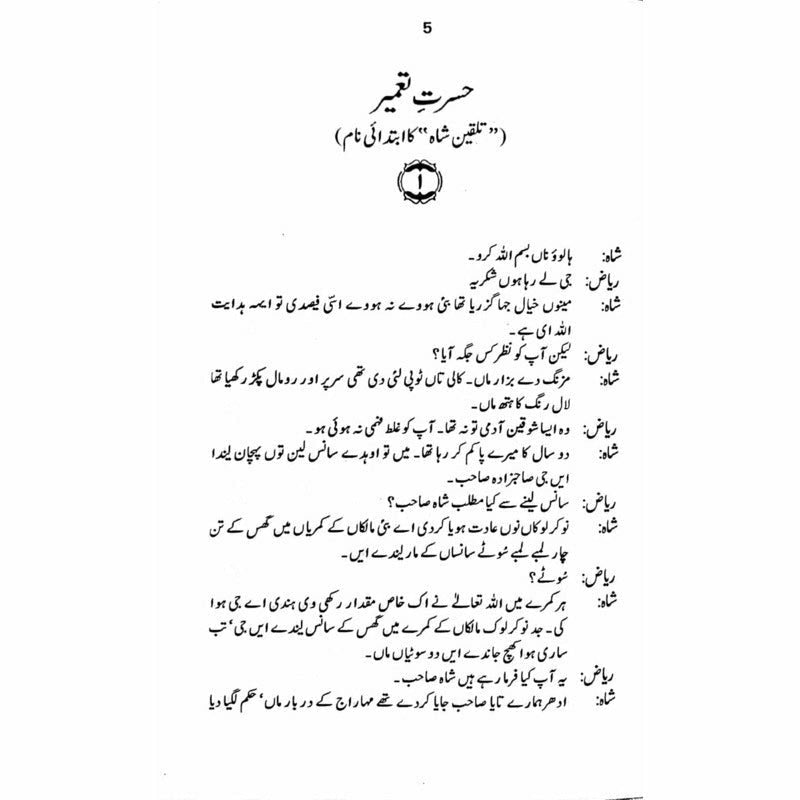 5
حسرتِ تعمیر
(”تلقین شاہ“ کا ابتدائی نام)
۱
شاہ: ہالوؤ ناں بسم اللہ کرو۔
ریاض: جی لے رہا ہوں شکریہ
شاہ: مینوں خیال جہا گزریا تھا بئی ہووے نہ ہووے اسّی فیصدی تو ایہہ ہدایت
اللہ ای ہے۔
ریاض: لیکن آپ کو نظر کس جگہ آیا؟
شاہ: مزنگ دے بزار ماں۔ کالی تاں ٹوپی لئی دی تھی سر پر اور رومال پکڑ رکھیا تھا
لال رنگ کا ہتھ ماں۔
ریاض: وہ ایسا شوقین آدمی تو نہ تھا۔ آپ کو غلط فہمی نہ ہوئی ہو۔
شاہ: دو سال کا میرے پا کم کر رہا تھا۔ میں تو اوہدے سانس لین توں پہچان لیندا
ایں جی صاحبزادہ صاحب۔
ریاض: سانس لینے سے کیا مطلب شاہ صاحب؟
شاہ: نوکر لوکاں نوں عادت ہویا کردی اے بئی مالکاں کے کمریاں میں گھس کے تن
چار لمبے لمبے سُوٹے سانساں کے مار لیندے ایں۔
ریاض: سُوٹے؟
شاہ: ہر کمرے میں اللہ تعالےٰ نے اک خاص مقدار رکھی وی ہندی اے جی ہوا
کی۔ جد نوکر لوک مالکاں کے کمرے میں گھس کے سانس لیندے ایں جی‘ تب
ساری ہوا کھچ جاندے ایں دو سوٹیاں ماں۔
ریاض: یہ آپ کیا فرما رہے ہیں شاہ صاحب۔
شاہ: ادھر ہمارے تایا صاحب جایا کردے تھے مہاراج کے دربار ماں‘ حکم لگیا دیا